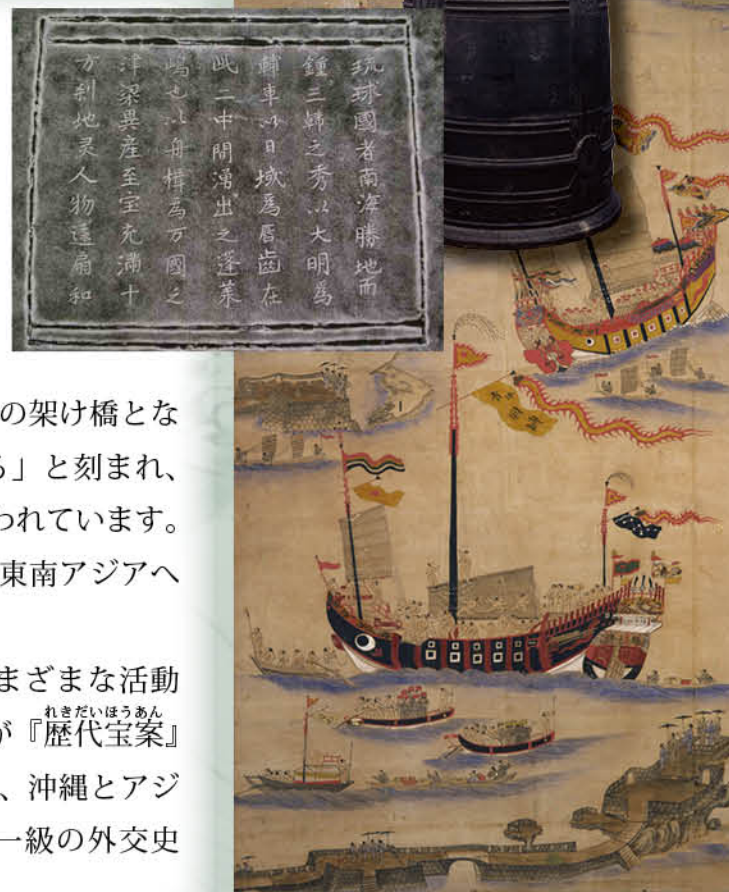 琉球國者南海勝地而
鍾三韓之秀以大明爲
輔車以日域爲脣齒在
此二中間湧出之蓬萊
嶋也以舟楫爲万國之
津梁異産至宝充滿十
方刹地灵人物遠扇和
の架け橋とな
」と刻まれ、
われています。
東南アジアへ
まざまな活動
れきだいほうあん
が『歴代宝案』
、沖縄とアジ
一級の外交史